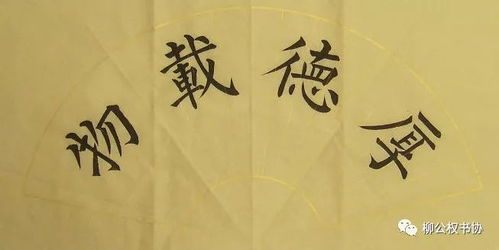 厚德載物
柳公权书协